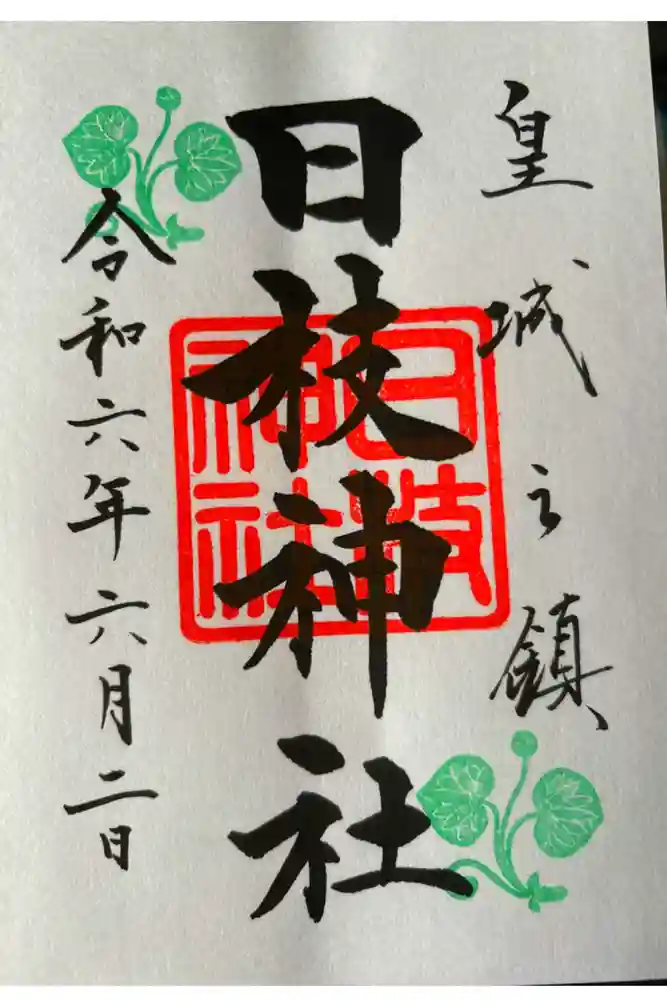 皇城之鎮
日枝神社
日枝
神社
令和六年六月二日